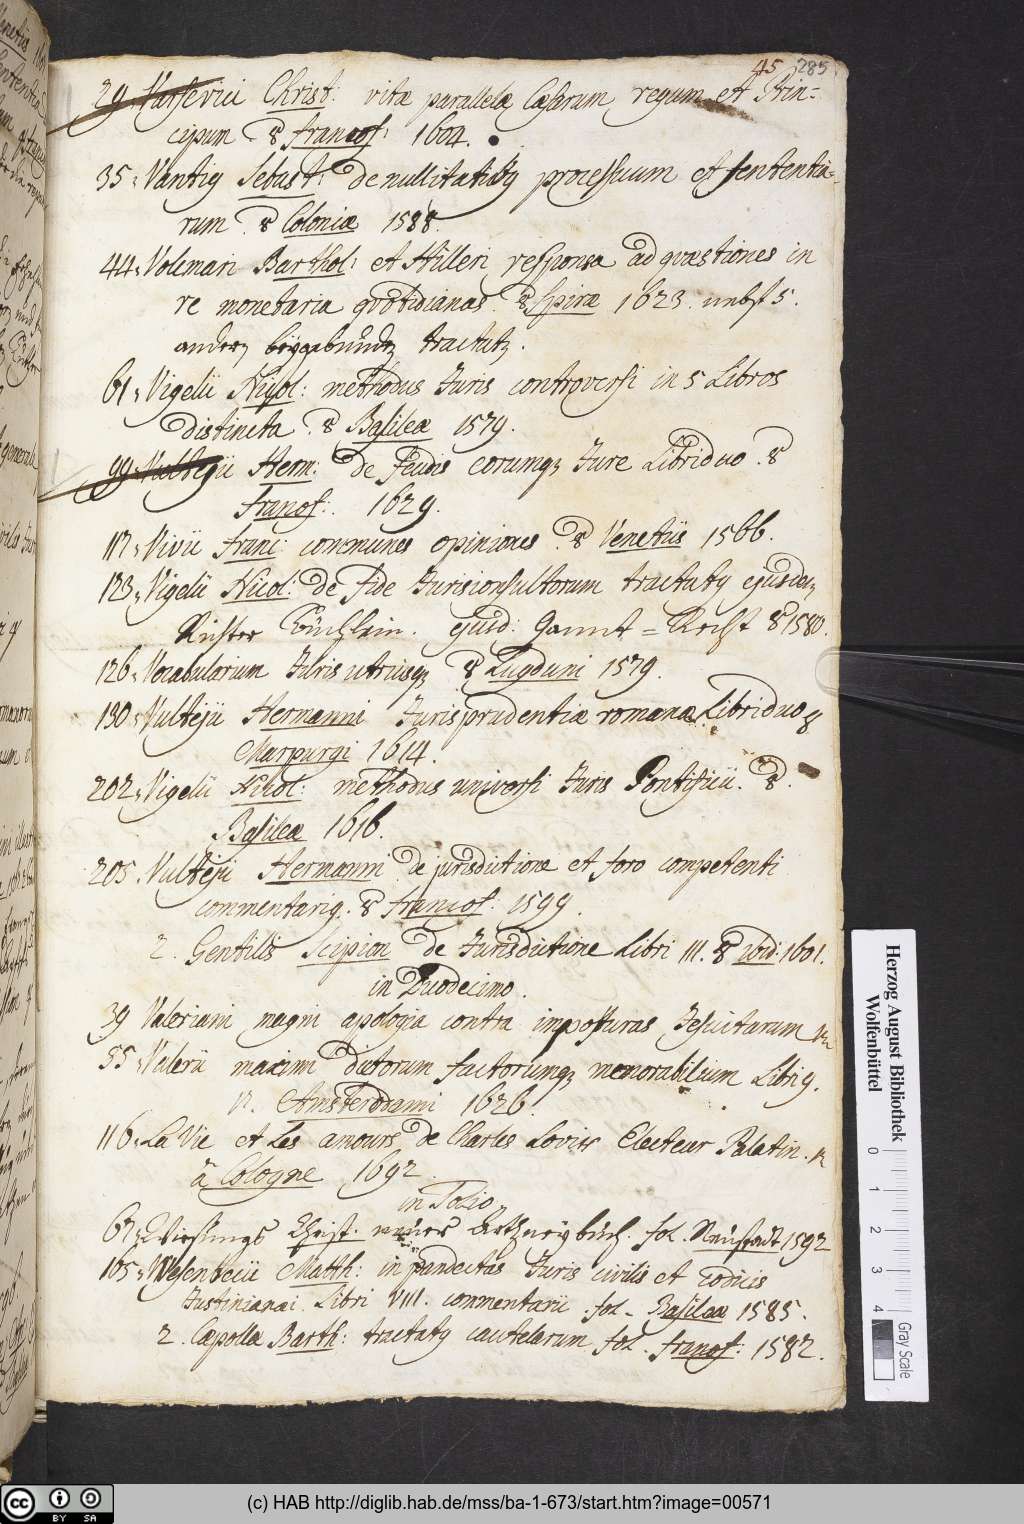 45 285
29. Varsevici Christ: vitæ parallelæ Cæsarum regum et Prin-
cipum. 8 francof: 1604.
35. Vantig Sebast: de nullitatibg processuum et sententia-
rum. 8 Coloniæ 1588.
44. Volcmari Barthol: et Hilleri responsa ad quæstiones in
re monetaria quotidianas. 8 Spiræ 1623. nebst 5.
andern beygebundn tractatn.
61. Vigelii Nicol: methodus Juris controversi in 5 Libros
distincta. 8 Basileæ 1579.
99. Vultejii Herm: de Feudis eorumq3 Jure Libri duo. 8
francof: 1629.
117. Vivii franc: communes opiniones. 8 Venetiis 1566.
123. Vigelii Nicol: de Fide Jurisconsultorum tractatg ejusdem
Richter Büchlein. ejusd: Gannt-Recht 8 1580.
126. Vocabularium Juris utriusq3. 8 Lugduni 1579.
130. Vulteji Hermanni Jurisprudentiæ romanæ Libri duo 8
Marpurgi 1614.
202. Vigelii Nicol: methodus universi Juris Pontificii. 8.
Basileæ 1616.
205. Vulteji Hermanni de jurisdictione et foro competenti
commentarig. 8 francof: 1599.
2. Gentilis Scipion de Jurisdictione Libri III. 8 ibid: 1601.
in Duodecimo.
39 Valeriani magni apologia contra imposturas Jesuitarum 12
55. Valerii maximi dictorum factorumq3 memorabilium Libri 9.
12. Amsterdami 1626.
116. La Vie et Les amours de Charles Lovis Electeur Palatin. 12
à Cologne 1692
in Folio
67. Wirsungs Christ. neües Artzneybuch. fol. Neüstadt 1592
165. Wesenbecii Matth: in pandectas Juris civilis et codicis
Justinianæi Libri VIII. commentarii. fol. Basileæ 1585.
2. Cæpollæ Barth: tractatg cautelarum fol. francof: 1582.
Herzog August Bibliothek
Wolfenbüttel
0 1 2 3 4
Gray Scale
cc BY SA
(c) HAB http://diglib.hab.de/mss/ba-1-673/start.htm?image=00571